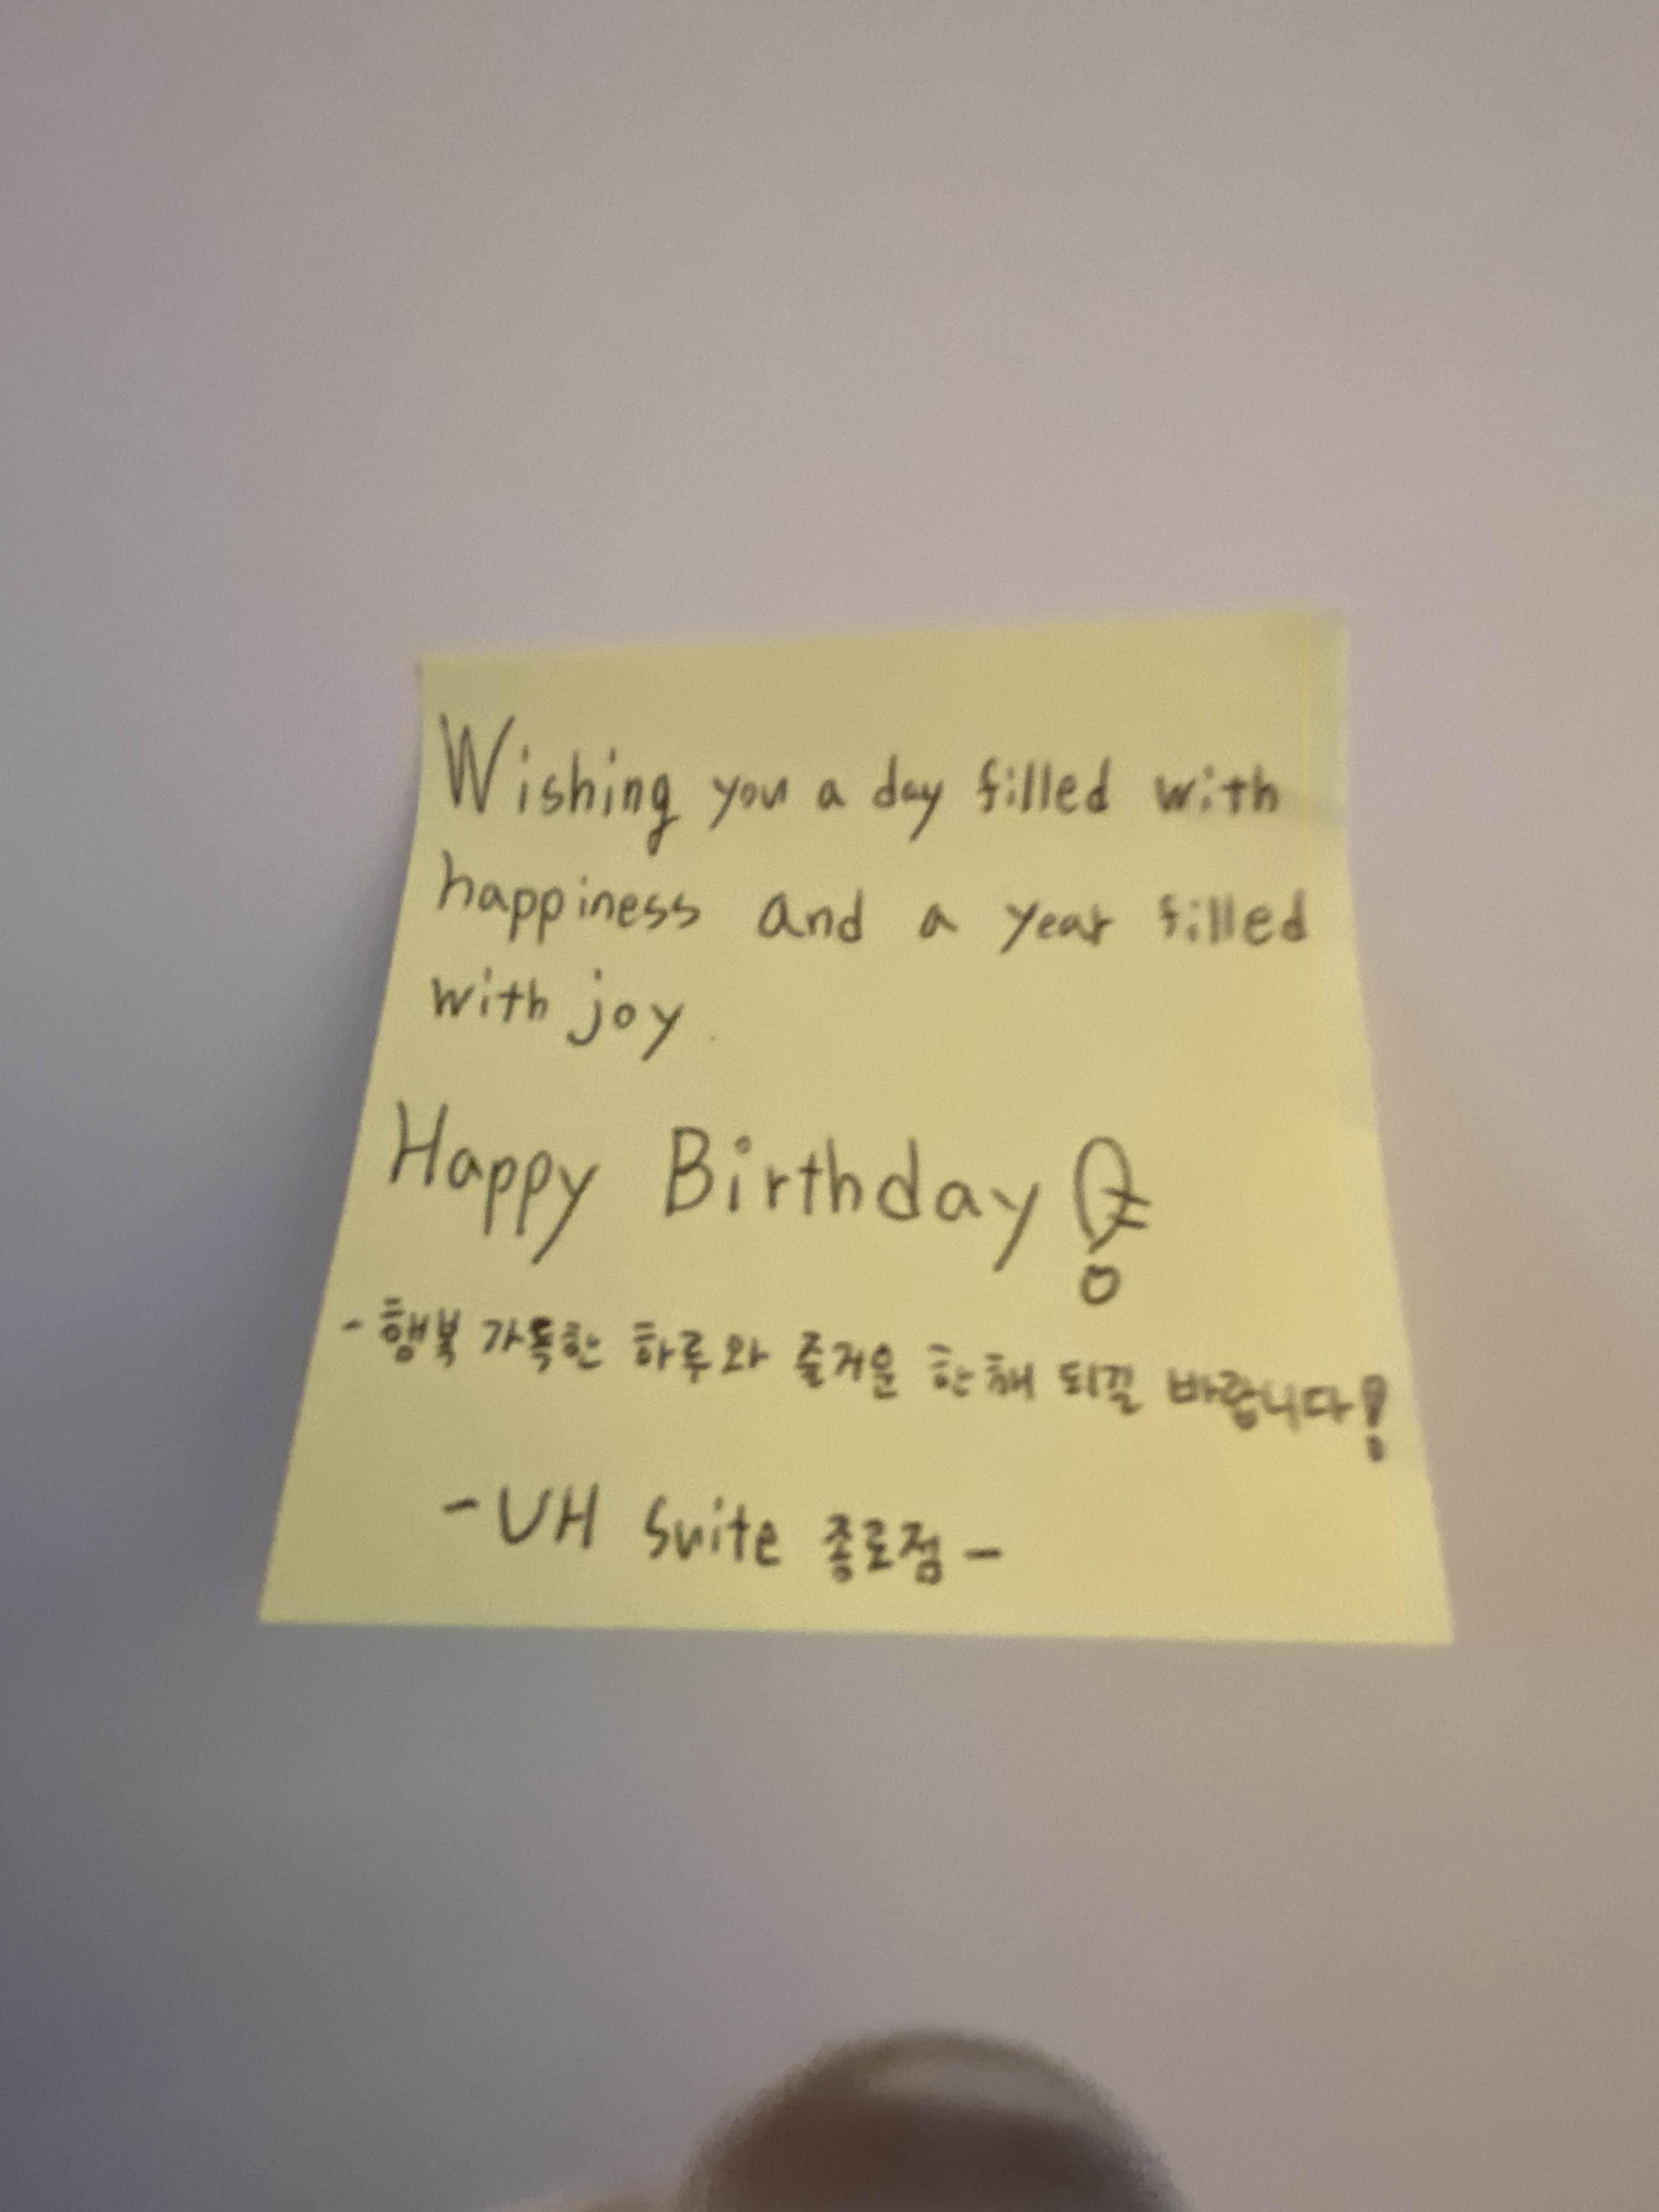 Wishing you a day filled with
happiness and a year filled
with joy.
Happy Birthday!
- 행복 가득한 하루와 즐거운 한해 되길 바랍니다!
- UH Suite 종로점 -